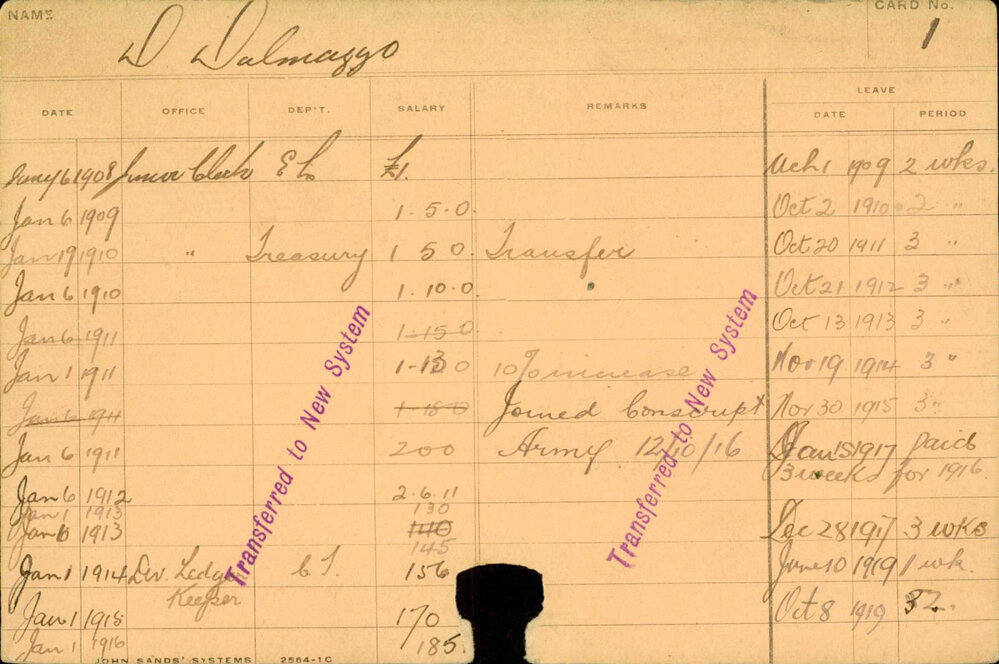 NAME
CARD No.
D Dalmazzo
1
DATE OFFICE DEP'T. SALARY REMARKS LEAVE
DATE PERIOD
Jany 6 1908 Junior Clerk E L £1. Mch 1 1909 2 wks.
Jan 6 1909 1.5.0. Oct 2 1910 2 "
Jan 19 1910 " Treasury 1 5 0. Transfer Oct 20 1911 3 "
Jan 6 1910 1.10.0. Oct 21 1912 3 "
Jan 6 1911 1-15 0 Oct 13 1913 3 "
Jan 1 1911 1-13 0 10% increase Nov 19 1914 3 "
Jan 6 1911 1-18 0 Joined Conscript Nov 30 1915 3 "
Jan 6 1911 200 Army 12/10/16 Jan 15 1917 paid
3 weeks for 1916
Jan 6 1912 2.6.11
Jan 1 1913 130
Jan 6 1913 140 Dec 28 1917 3 wks
145
Jan 1 1914 Dev. Ledger C I. 156 June 10 1919 1 wk.
Keeper
Jan 1 1915 170 Oct 8 1919
Jan 1 1916 185.
Transferred to New System
Transferred to New System
JOHN SANDS' SYSTEMS 2564-1C